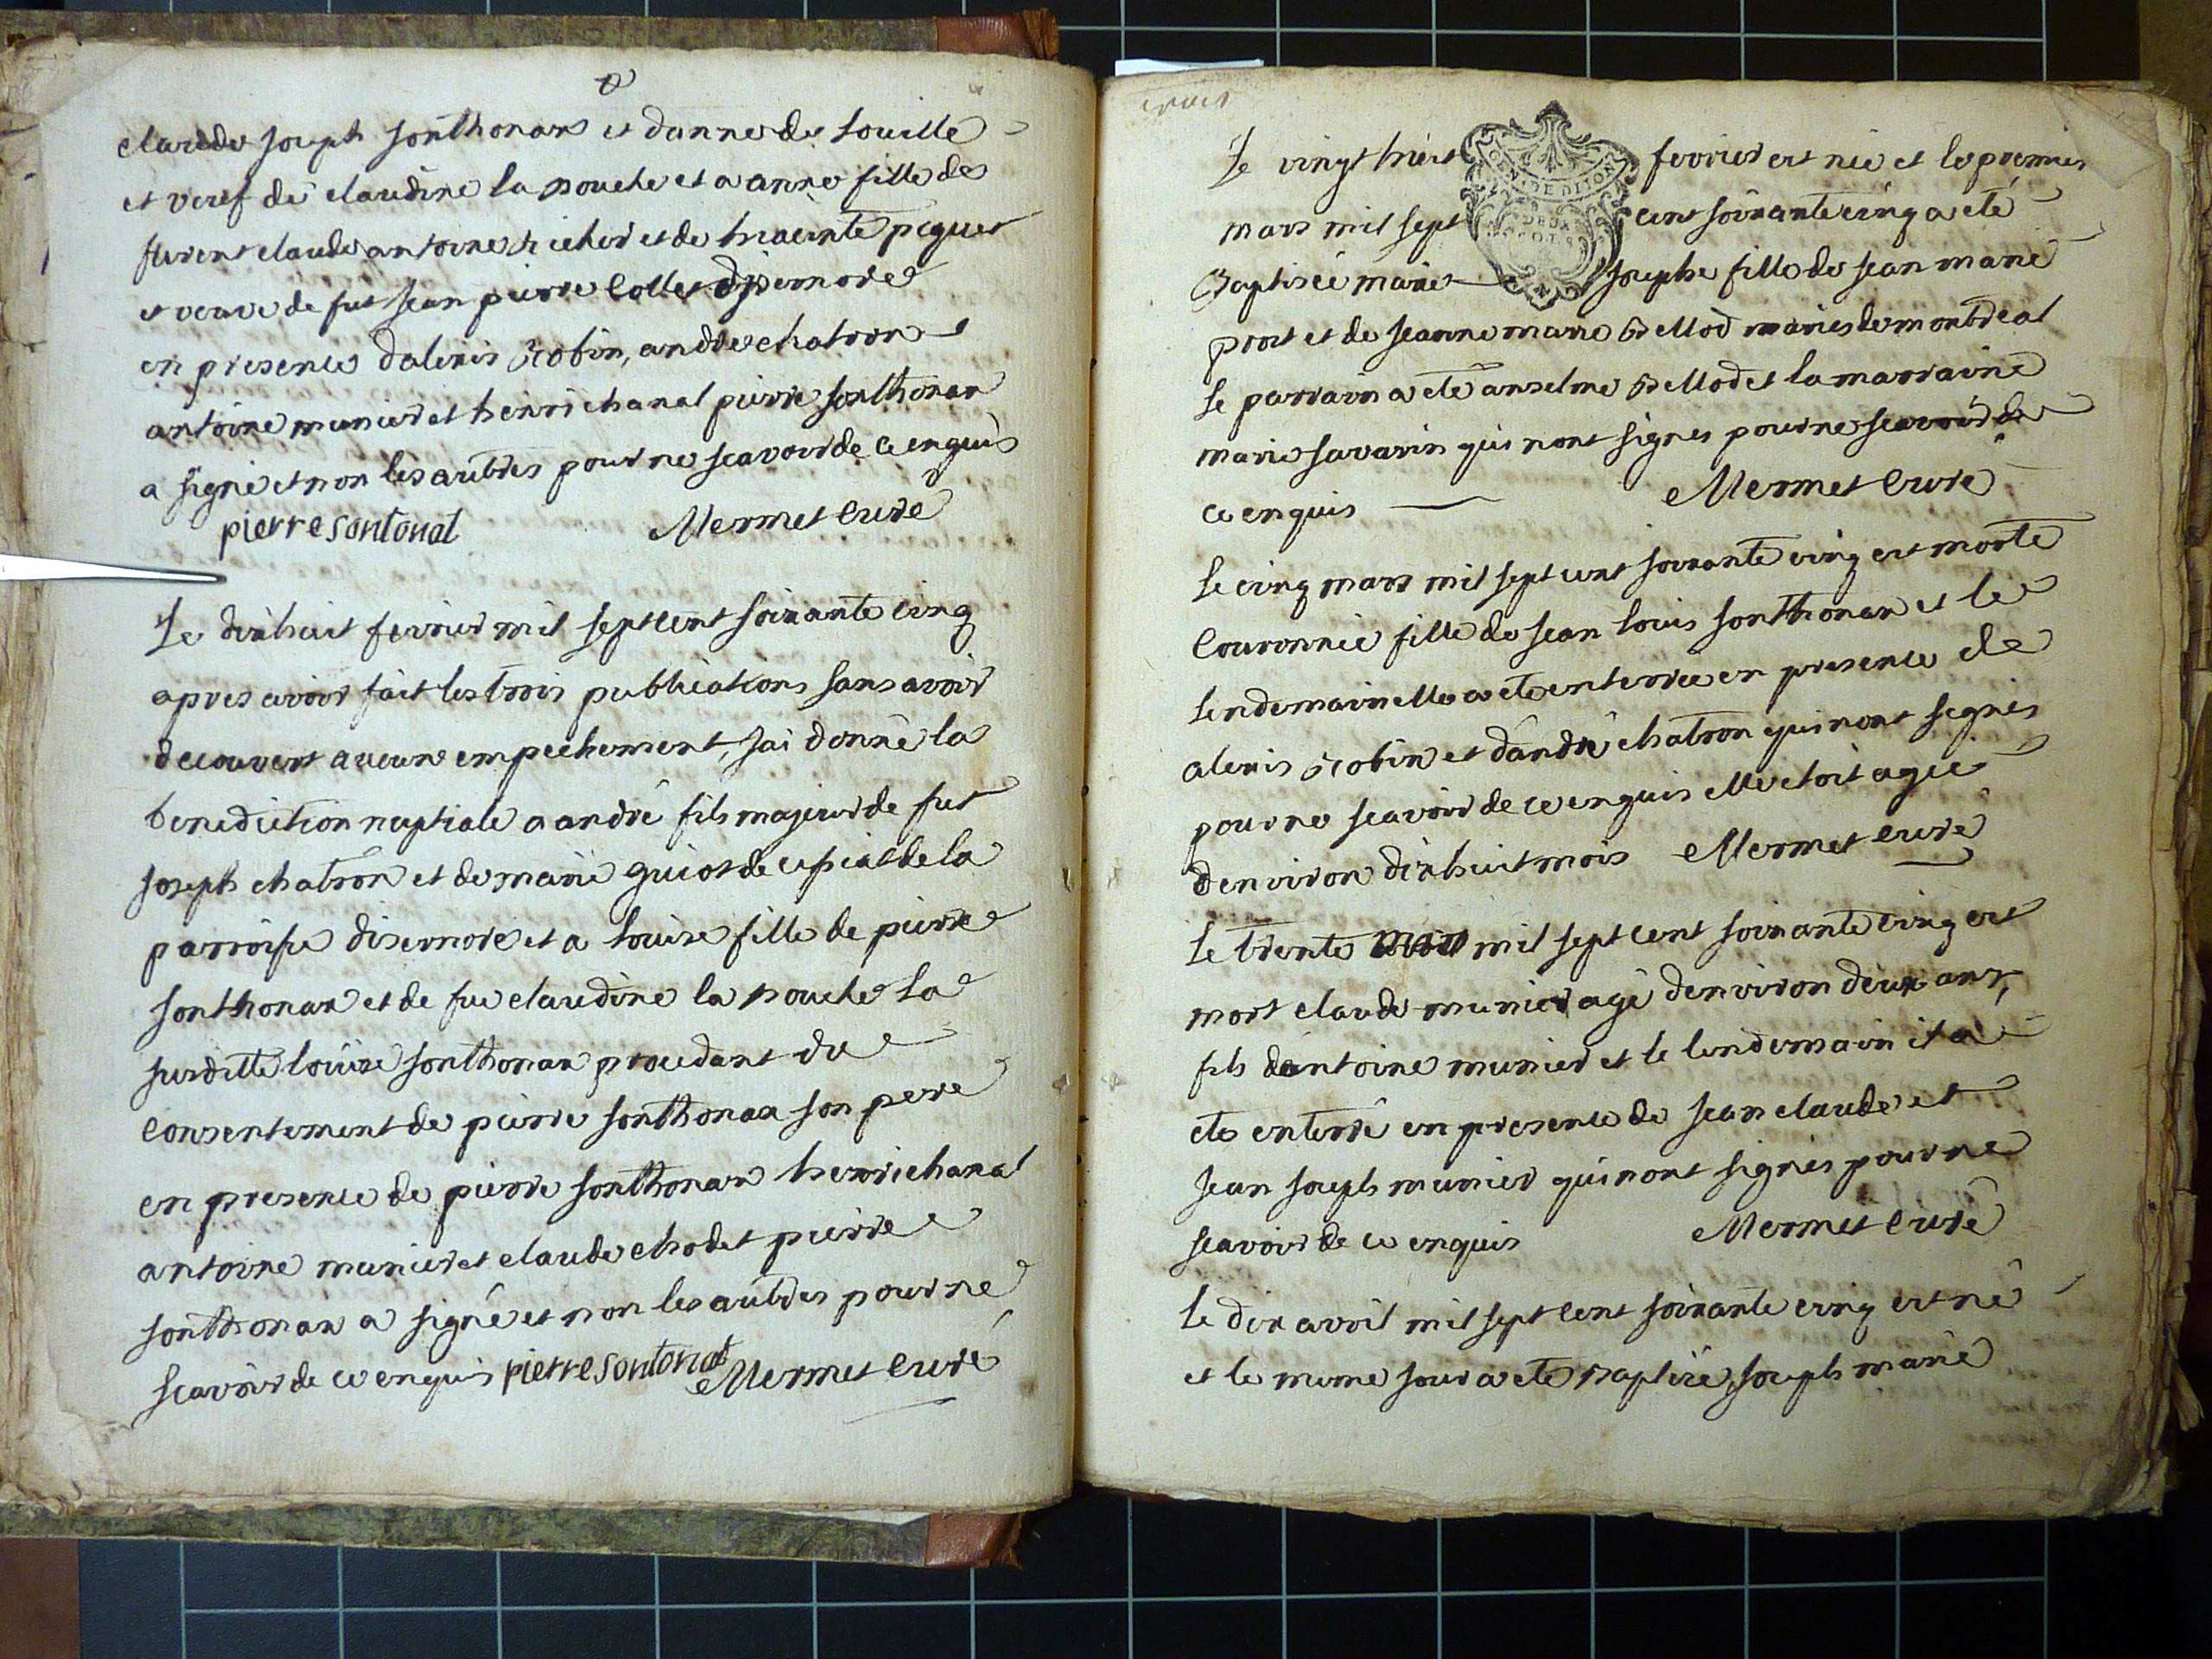 claude joseph sonthonax et danne de louille
et veuf de claudine la pouche et a anne fille des
furent claude antoine richer et de hiacinte piquet
et veuve de fut jean pierre Collet disernore
en presence dalexis robin, andre chatron
antoine munier et henri chanal pierre sonthonax
a signé et non les autres pour ne scavoir de ce enquis
pierre sontonat Mermet curé
Le dixhuit fevrier mil sept cent soixante cinq
apres avoir fait les trois publications sans avoir
decouvert aucune empechement, jai donné la
benediction nuptiale a andré fils majeur de fut
joseph chatron et de marie guiot de cepiat de la
parroisse disernore et a louise fille de pierre
sonthonax et de fue claudine la pouche la
susditte louise sonthonax procedant du
consentement de pierre sonthonax son pere
en presence de pierre sonthonax henri chanal
antoine munier et claude chodet pierre
sonthonax a signé et non les autres pour ne
scavoir de ce enquis pierre sontonat Mermet curé
Le vingt huit fevrier est née et le premier
mars mil sept cent soixante cinq a eté
Baptisée marie josephe fille de jean marie
prost et de jeanne marie bellod mariés de montreal
le parrain a eté anselme bellod et la marraine
marie savarin qui nont signes pour ne scavoir de
ce enquis Mermet curé
Le cinq mars mil sept cent soixante cinq est morte
Couronnée fille de jean louis sonthonax et le
lendemain elle a eté enterrée en presence de
alexis robin et dandré chatron qui nont signés
pour ne scavoir de ce enquis elle etoit agée
denviron dixhuit mois Mermet curé
Le trente mars mil sept cent soixante cinq est
mort claude munier agé denviron deux ans,
fils dantoine munier et le lendemain il a
eté enterré en presence de jean claude et
jean joseph munier qui nont signés pour ne
scavoir de ce enquis Mermet curé
Le dix avril mil sept cent soixante cinq est né
et le meme jour a eté baptisé, joseph marie